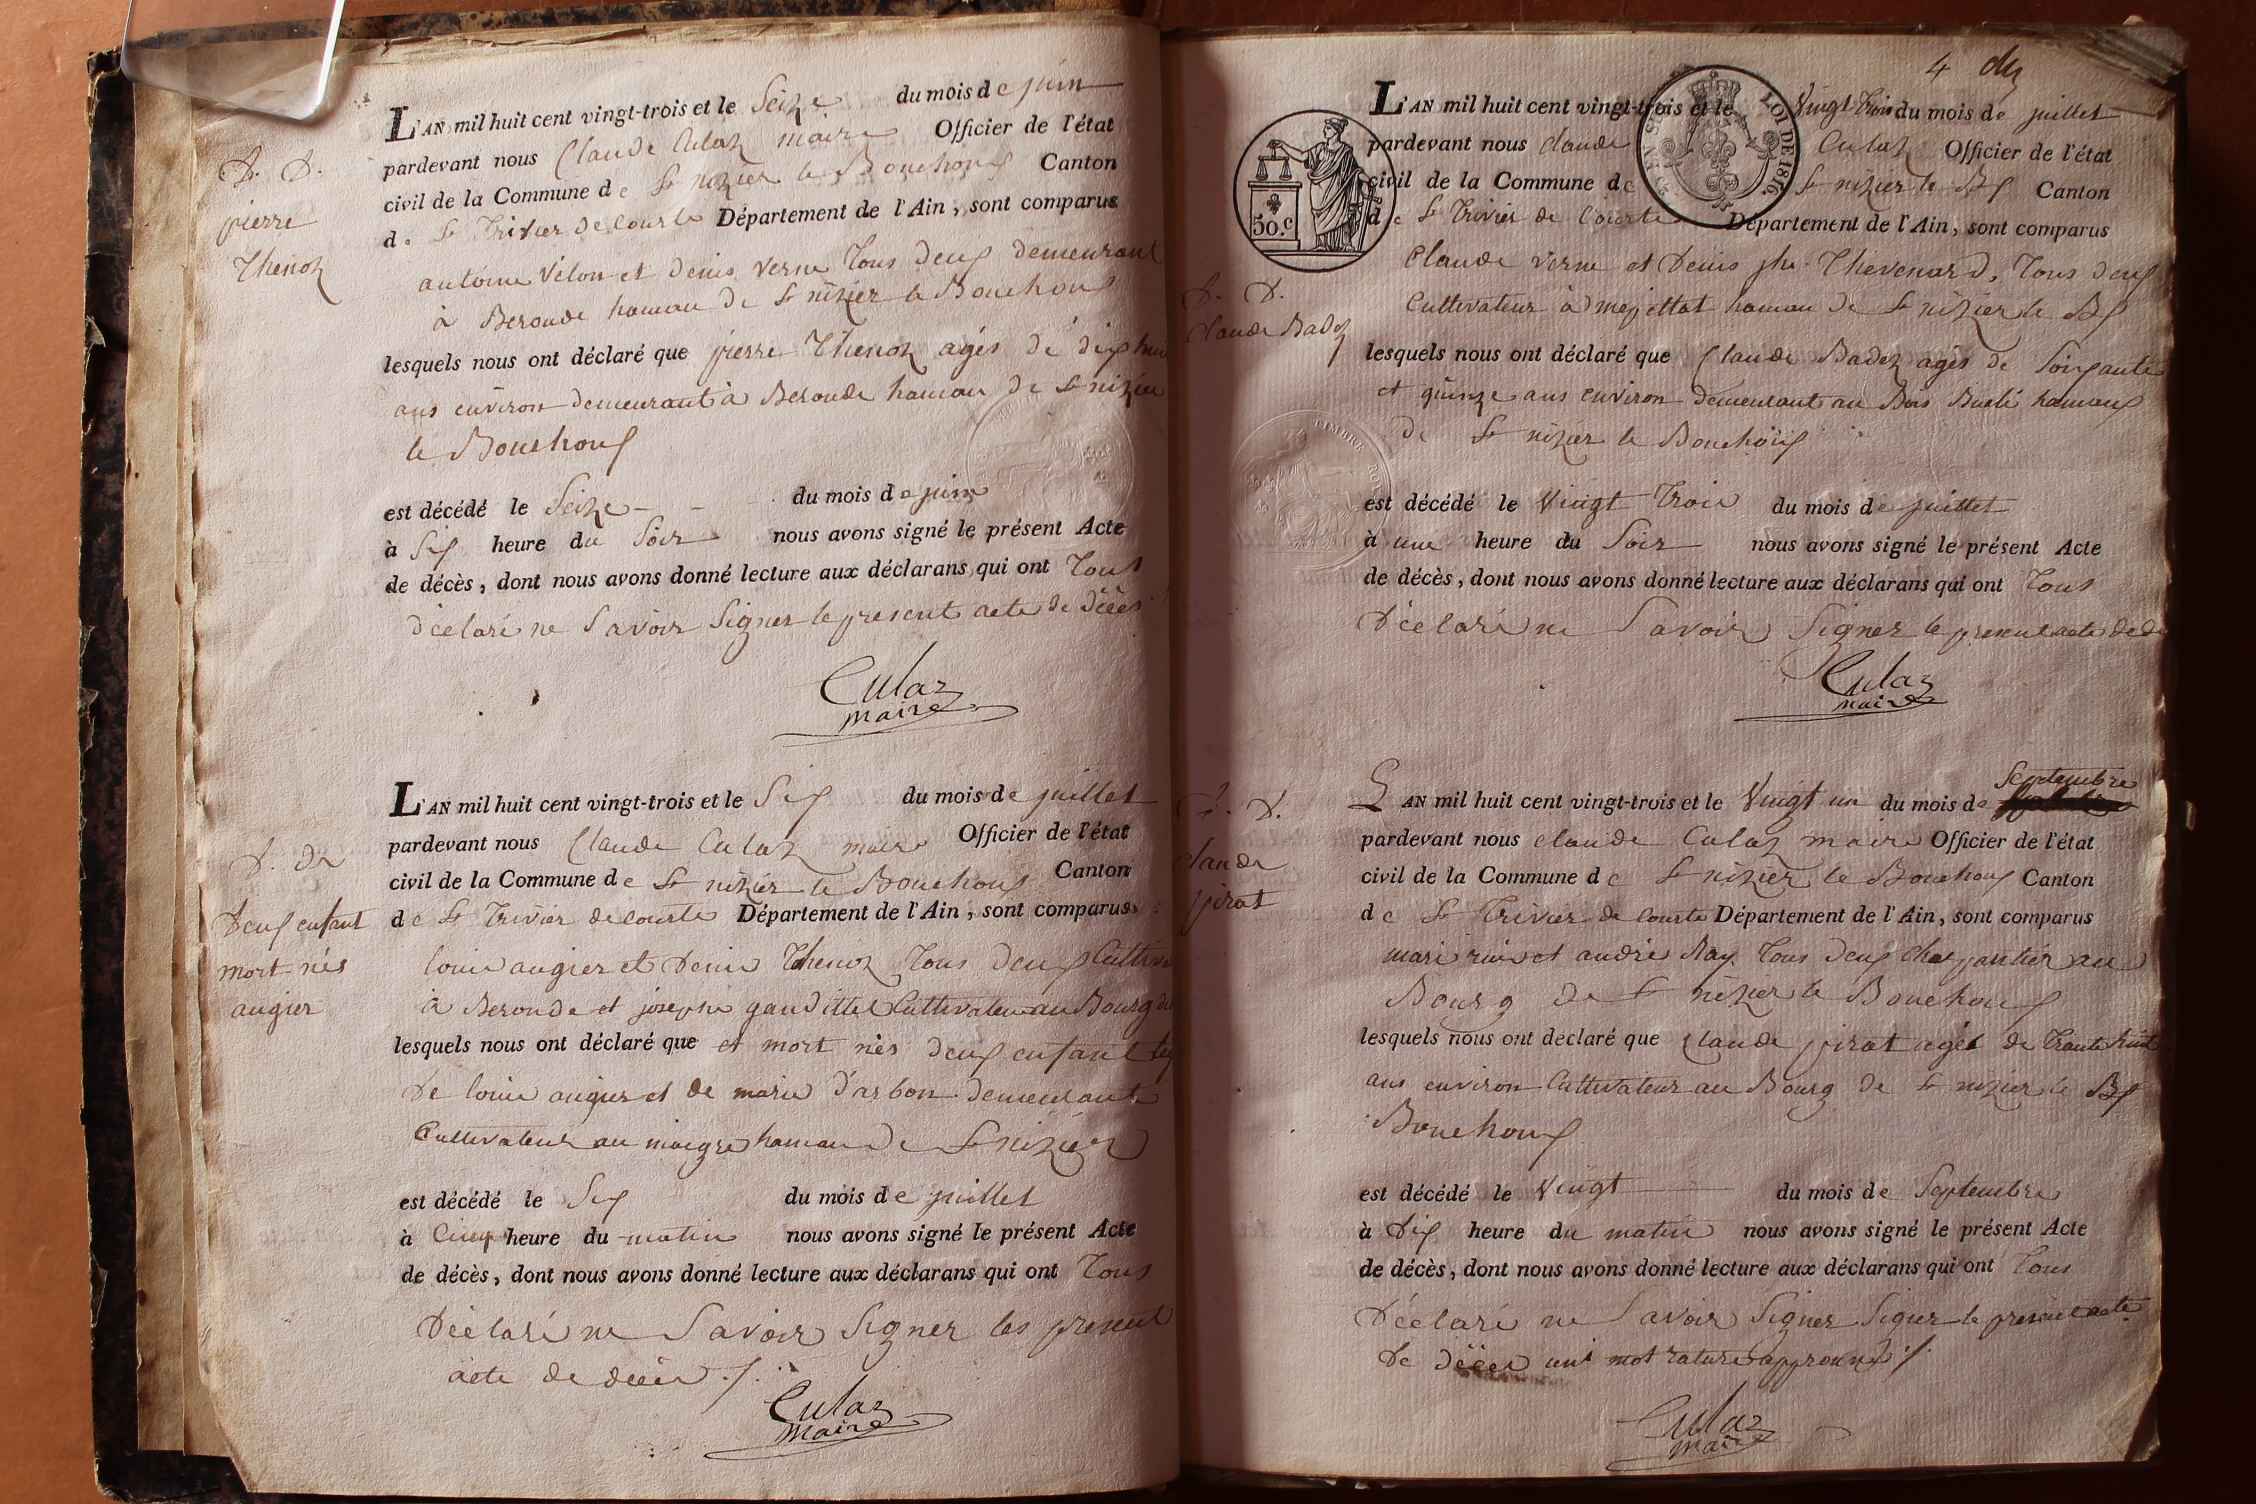 D. D.
pierre
Thenoz
L'AN mil huit cent vingt-trois et le Seize du mois de juin
pardevant nous Claude Culaz maire Officier de l'état
civil de la Commune de St nizier le Bouchoux Canton
de St Trivier de Courte Département de l'Ain, sont comparus
antoine Vélon et denis verne Tous deux demeurant
à Beronde hameau de St nizier le Bouchoux
lesquels nous ont déclaré que pierre Thenoz agés de dix huit
ans environ demeurant à Beronde hameau de St nizier
le Bouchoux
est décédé le Seize du mois de juin
à Six heure du Soir nous avons signé le présent Acte
de décès, dont nous avons donné lecture aux déclarans qui ont Tous
déclaré ne Savoir Signer le present acte de décès
Culaz
maire
D. De
Deux enfant
mort nés
augier
L'AN mil huit cent vingt-trois et le Six du mois de juillet
pardevant nous Claude Culaz maire Officier de l'état
civil de la Commune de St nizier le Bouchoux Canton
de St Trivier de courte Département de l'Ain, sont comparus
louis augier et Denis Thenoz Tous deux
à Beronde et joseph gaudillet Cultivateur au Bourg
lesquels nous ont déclaré que et mort nés deux enfant
De louis augier et de marie d'arbon demeurant
Cultivateur au maigre hameau de St nizier
est décédé le Six du mois de juillet
à Cinq heure du matin nous avons signé le présent Acte
de décès, dont nous avons donné lecture aux déclarans qui ont Tous
Déclaré ne Savoir Signer les present
acte de décès
Culaz
maire
4
50.c
LOI DE 1816
TIMBRE
D. D.
Claude Badez
L'AN mil huit cent vingt-trois et le Vingt Trois du mois de juillet
pardevant nous claude Culaz Officier de l'état
civil de la Commune de St nizier le Bx Canton
de St Trivier de Courte Département de l'Ain, sont comparus
Claude verne et Denis jh Thevenard, Tous deux
Cultivateur à mejettat hameau de St nizier le Bx
lesquels nous ont déclaré que Claude Badez agés de Soixante
et quinze ans environ demeurant au Bois hameau
de St nizier le Bouchoux
est décédé le Vingt Trois du mois de juillet
à une heure du Soir nous avons signé le présent Acte
de décès, dont nous avons donné lecture aux déclarans qui ont Tous
Déclaré ne Savoir Signer le present acte de
Culaz
maire
D. D.
claude
pirat
L'AN mil huit cent vingt-trois et le Vingt un du mois de Septembre
pardevant nous claude Culaz maire Officier de l'état
civil de la Commune de St nizier le Bouchoux Canton
de St Trivier de Courte Département de l'Ain, sont comparus
et andré Ray Tous deux charpantier au
Bourg de St nizier le Bouchoux
lesquels nous ont déclaré que Claude pirat agés de Trante huit
ans environ Cultivateur au Bourg de St nizier le Bx
Bouchoux
est décédé le Vingt du mois de Septembre
à Dix heure du matin nous avons signé le présent Acte
de décès, dont nous avons donné lecture aux déclarans qui ont Tous
Déclaré ne Savoir Signer Signer le present acte
De décès un mot raturé approuvé
Culaz
maire